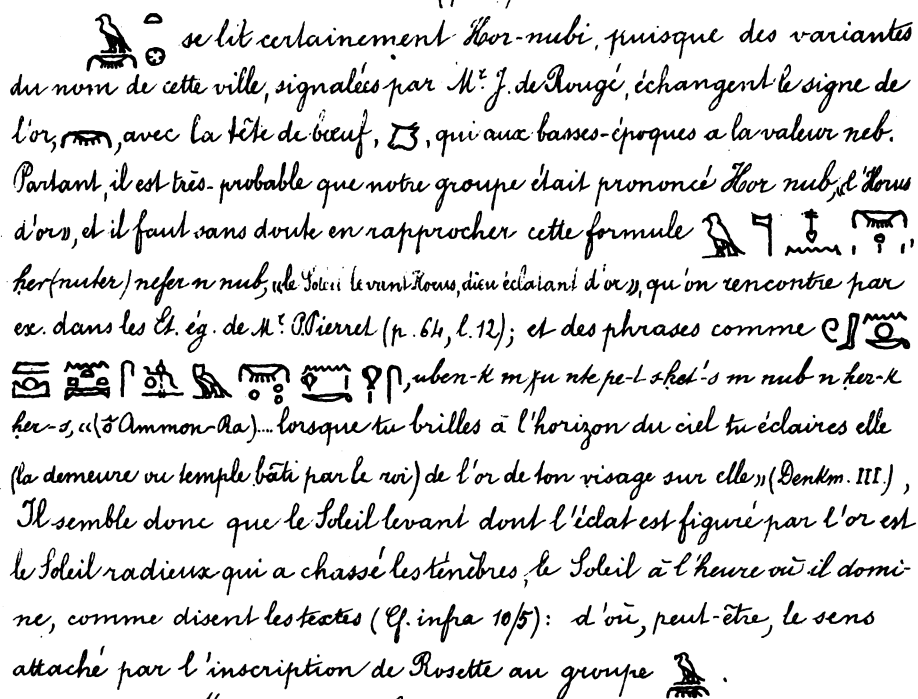 𓅉 𓏏 𓊖 se lit certainement Hor-nubi, puisque des variantes
du nom de cette ville, signalées par Mr. J. de Rougé, échangent le signe de
l'or, 𓋞, avec la tête de bœuf, , qui aux basses-époques a la valeur neb.
Partant, il est très-probable que notre groupe était prononcé Hor nub, «l'Horus
d'or», et il faut sans doute en rapprocher cette formule
her (nuter) nefer n nub, «le Soleil levant Horus, dieu éclatant d'or», qu'on rencontre par
ex. dans les Et. ég. de Mr. P. Pierret (p. 64, l. 12); et des phrases comme
, uben-k m χu nte pe-t shet's m nub n her-k
her-s, «(ô Ammon-Ra)... lorsque tu brilles à l'horizon du ciel tu éclaires elle
(la demeure ou temple bâti par le roi) de l'or de ton visage sur elle» (Denkm. III.),
Il semble donc que le Soleil levant dont l'éclat est figuré par l'or est
le Soleil radieux qui a chassé les ténèbres, le Soleil à l'heure où il domi-
ne, comme disent les textes (Cf. infra 10/5): d'où, peut-être, le sens
attaché par l'inscription de Rosette au groupe 𓅉.